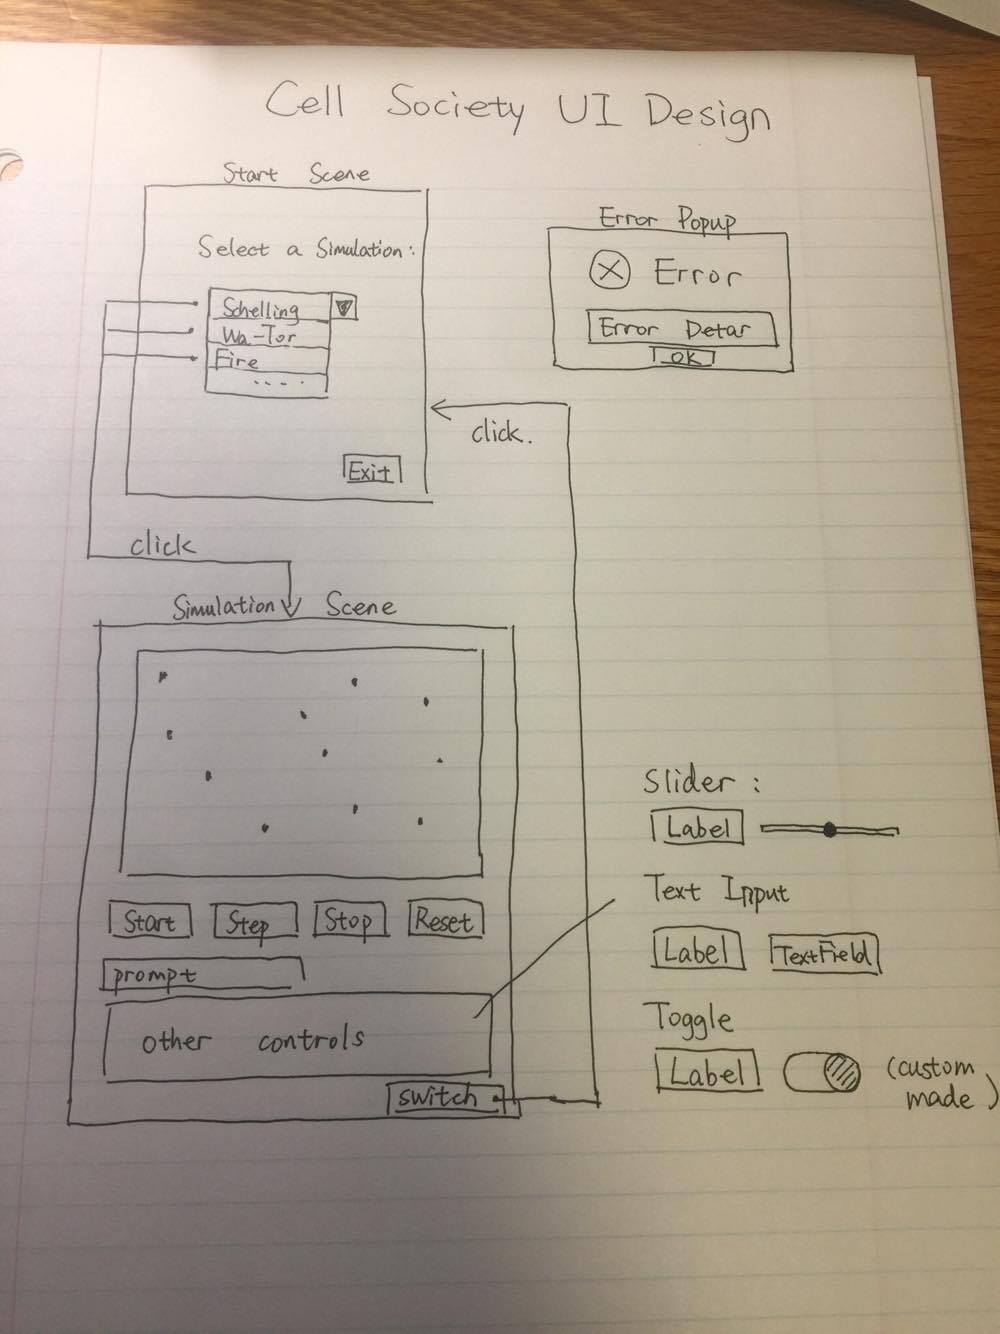 Cell Society UI Design
Start Scene
Select a Simulation:
Schelling
Wa-Tor
Fire
.....
Exit
click
Error Popup
Error
Error Detar
OK
click.
Simulation Scene
Start
Step
Stop
Reset
prompt
other controls
switch
Slider :
Label
Text Input
Label
TextField
Toggle
Label
(custom
made)